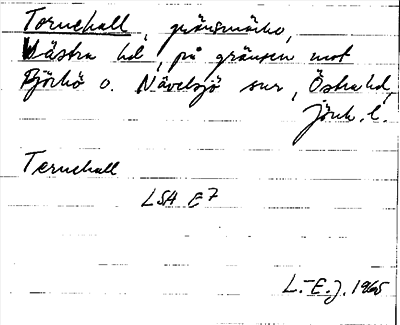 Tornehall, gränsmärke,
Västra hd, på gränsen mot
Björkö o. Nävelsjö snr, Östra hd,
Jönk. l.
Ternehall
LSA E7
L.-E. J. 1965